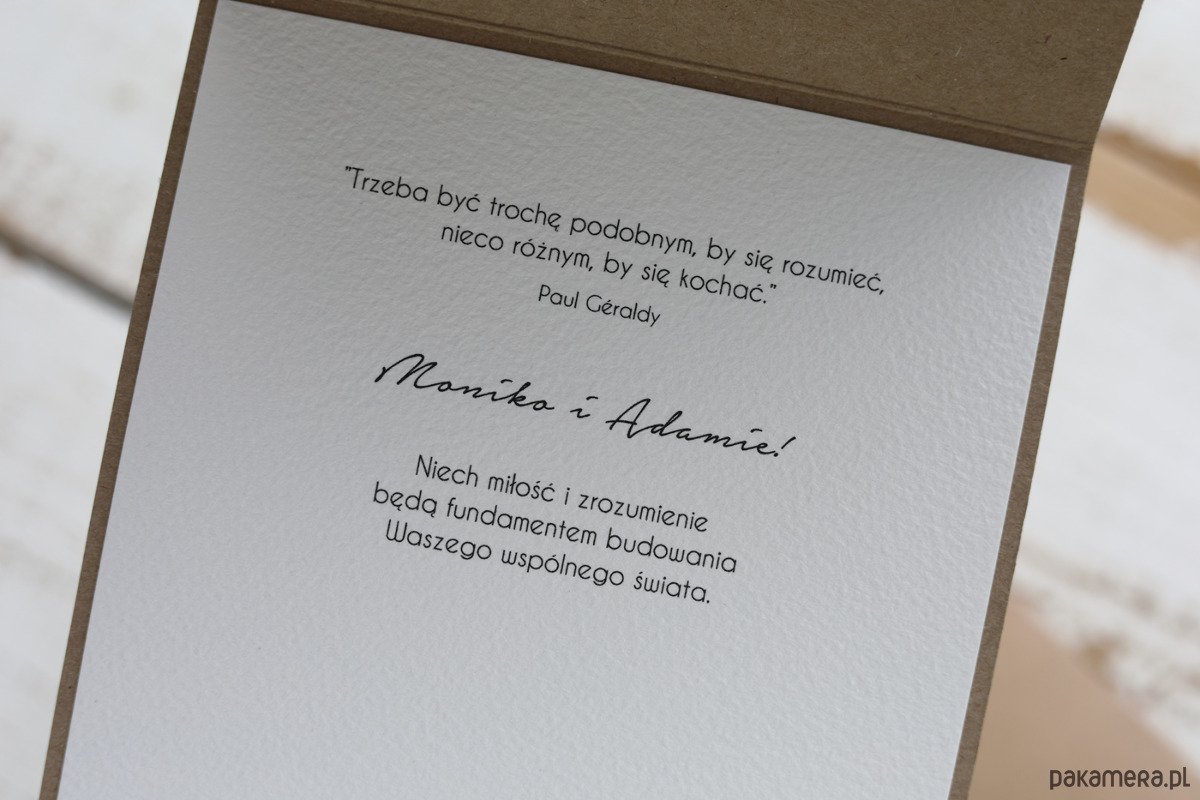 "Trzeba być trochę podobnym, by się rozumieć,
nieco różnym, by się kochać."
Paul Géraldy
Moniko i Adamie!
Niech miłość i zrozumienie
będą fundamentem budowania
Waszego wspólnego świata.
pakamera.pl